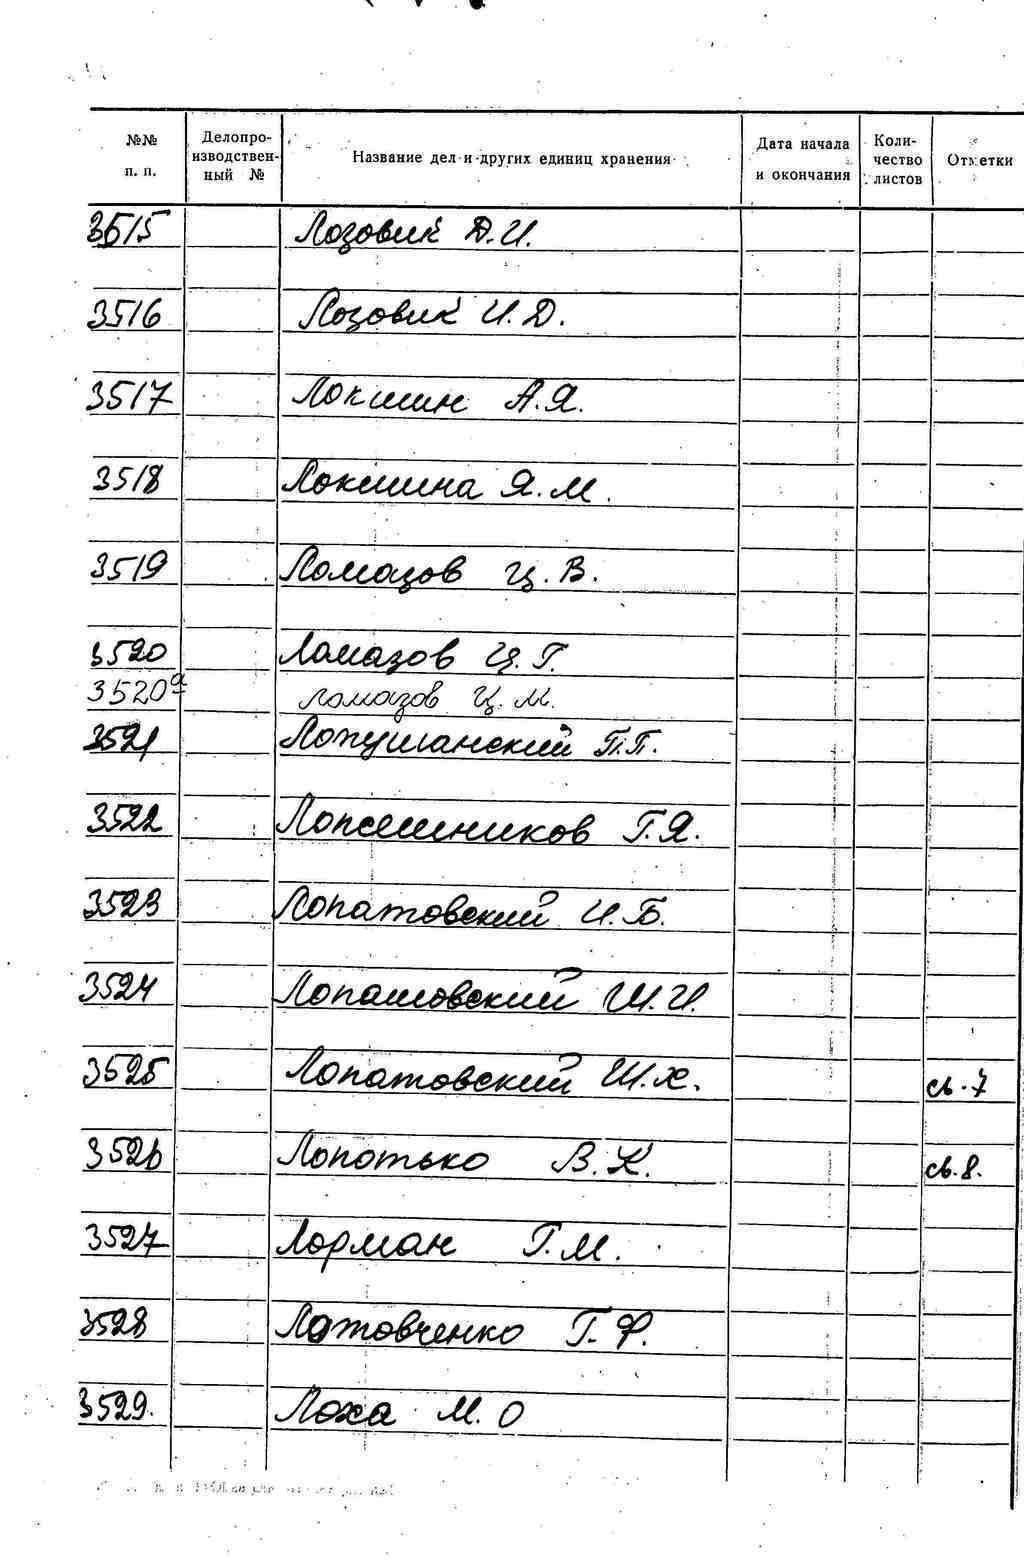 №№ п. п. Делопроизводственный № Название дел и других единиц хранения Дата начала и окончания Количество листов Отметки
3515 Лозовик Д.И.
3516 Лозовик И.Д.
3517 Локшин А.Я.
3518 Локшина Я.М.
3519 Ломазов Ц.В.
3520 Ломазов Ц.Г.
3520а Ломазов Ц.М.
3521 Лопушанский П.П.
3522 Г.Я.
3523 Лопатовский И.Б.
3524 Лопатовский Ш.И.
3525 Лопатовский Ш.Х. св.7
3526 Лопотько В.К. св.8.
3527 Лорман Г.М.
3528 Лотовченко Г.Ф.
3529. Лоха М.О